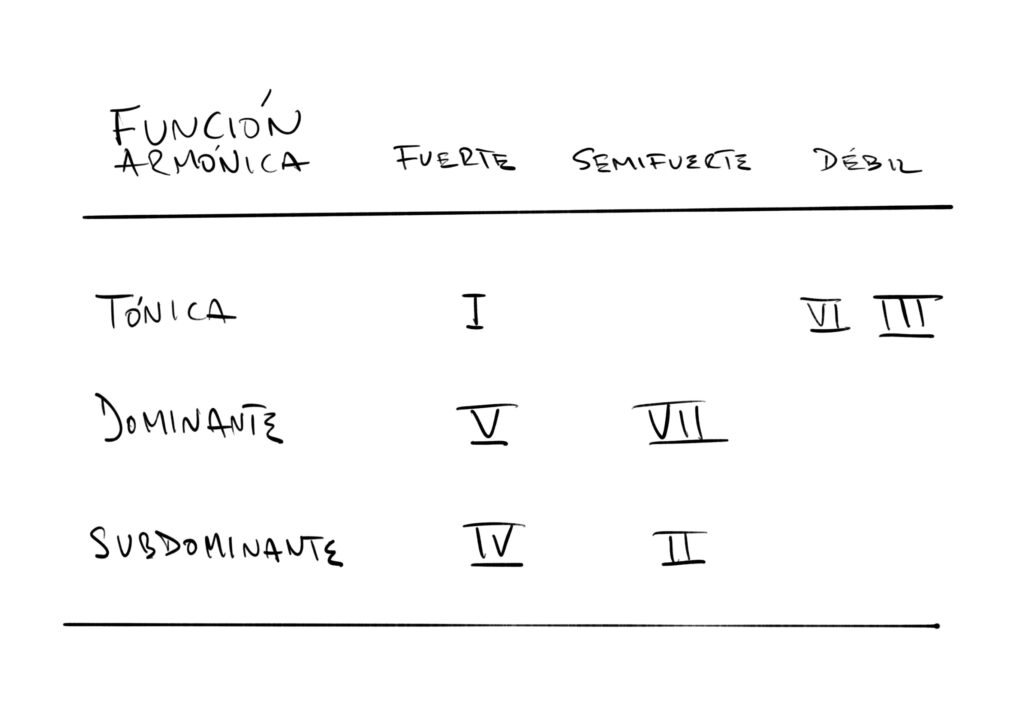 FUNCIÓN
ARMÓNICA FUERTE SEMIFUERTE DÉBIL
TÓNICA I VI III
DOMINANTE V VII
SUBDOMINANTE IV II